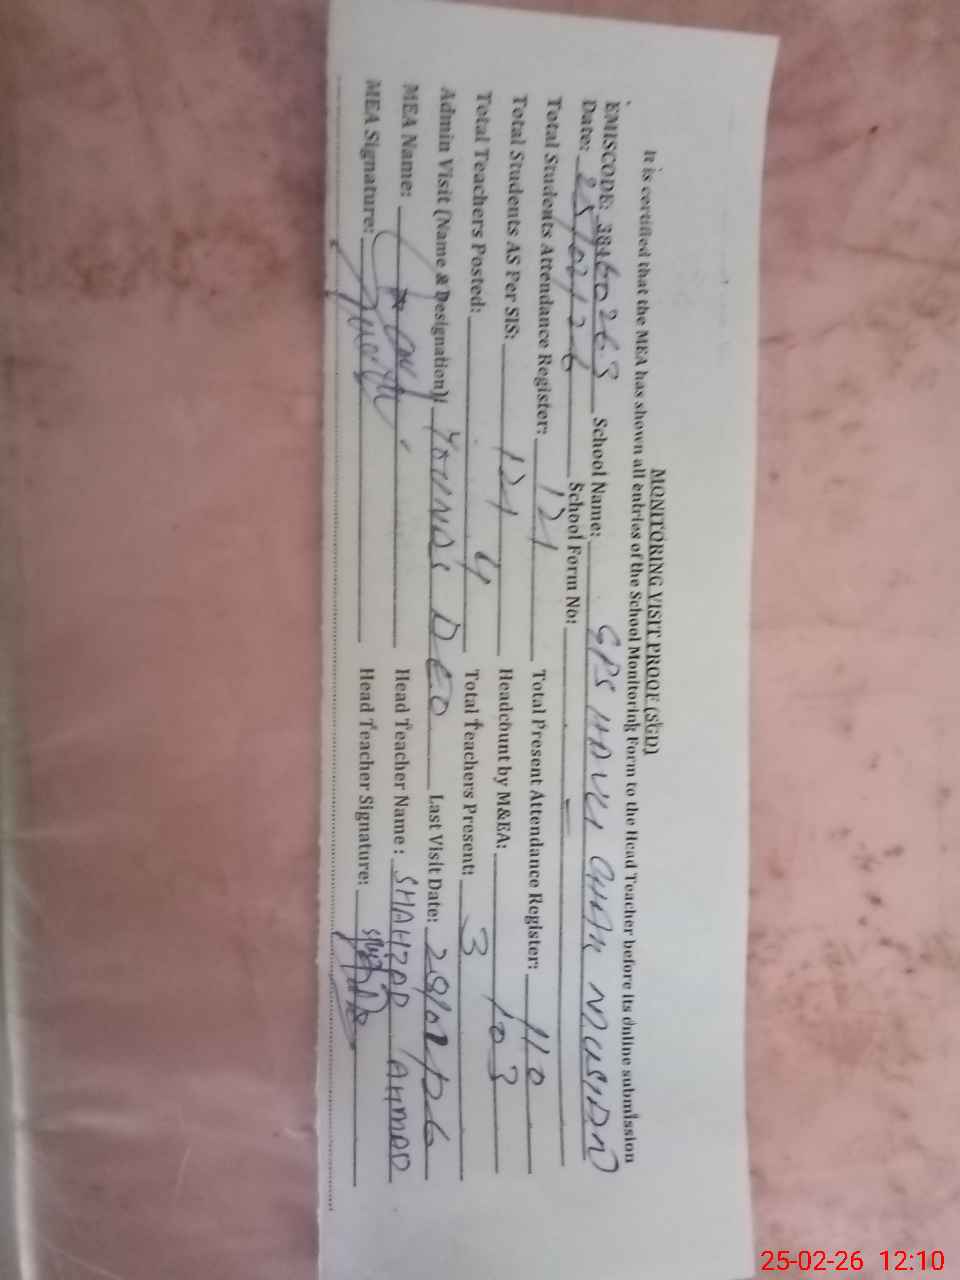 MONITORING VISIT PROOF (SGD)
It is certified that the MEA has shown all entries of the School Monitoring Form to the Head Teacher before its online submission
EMISCODE: 38460263 School Name: GPS HAVLI MUSIDN
Date: 25/02/26 School Form No:
Total Students Attendance Register: 121 Total Present Attendance Register: 110
Total Students AS Per SIS: 121 Headcount by M&EA: 103
Total Teachers Posted: 4 Total Teachers Present: 3
Admin Visit (Name & Designation): DEO Last Visit Date: /02/26
MEA Name: Head Teacher Name: SHAHZAD AHMAD
MEA Signature: Head Teacher Signature:
25-02-26 12:10